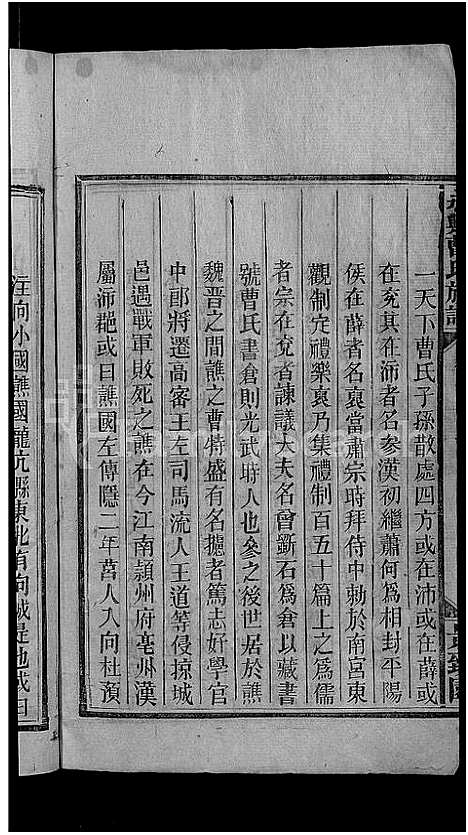 一天下曹氏子孫散處四方或在沛或在薛或
在兗其在沛者名參漢初繼蕭何爲相封平陽
侯在薛者名裒當肅宗時拜侍中勅於南宮東
觀制定禮樂裒乃集禮制百五十篇上之爲儒
者宗在兗者諫議大夫名曾斵石爲倉以藏書
號曹氏書倉則光武時人也參之後世居於譙
魏晉之間譙之曹特盛有名攄者篤志好學官
中郎將遷高密王左司馬流人王逌等侵掠城
邑遇戰軍敗死之譙在今江南潁州府亳州漢
屬沛郡或曰譙國左傳隱二年莒人入向杜預
注向小國譙國龍亢縣東北有向城是也或曰